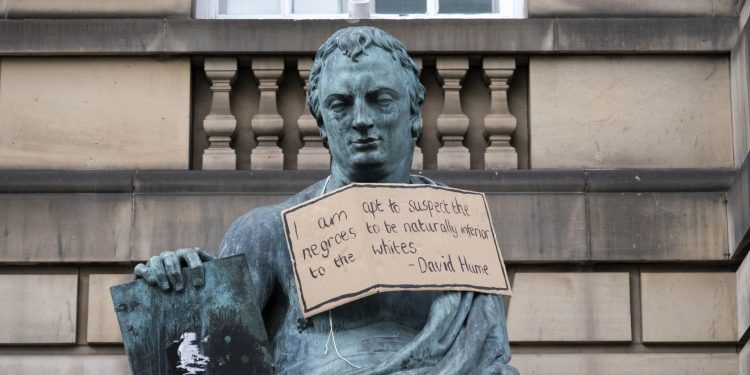 I am apt to suspect the
negroes to be naturally inferior
to the whites
- David Hume